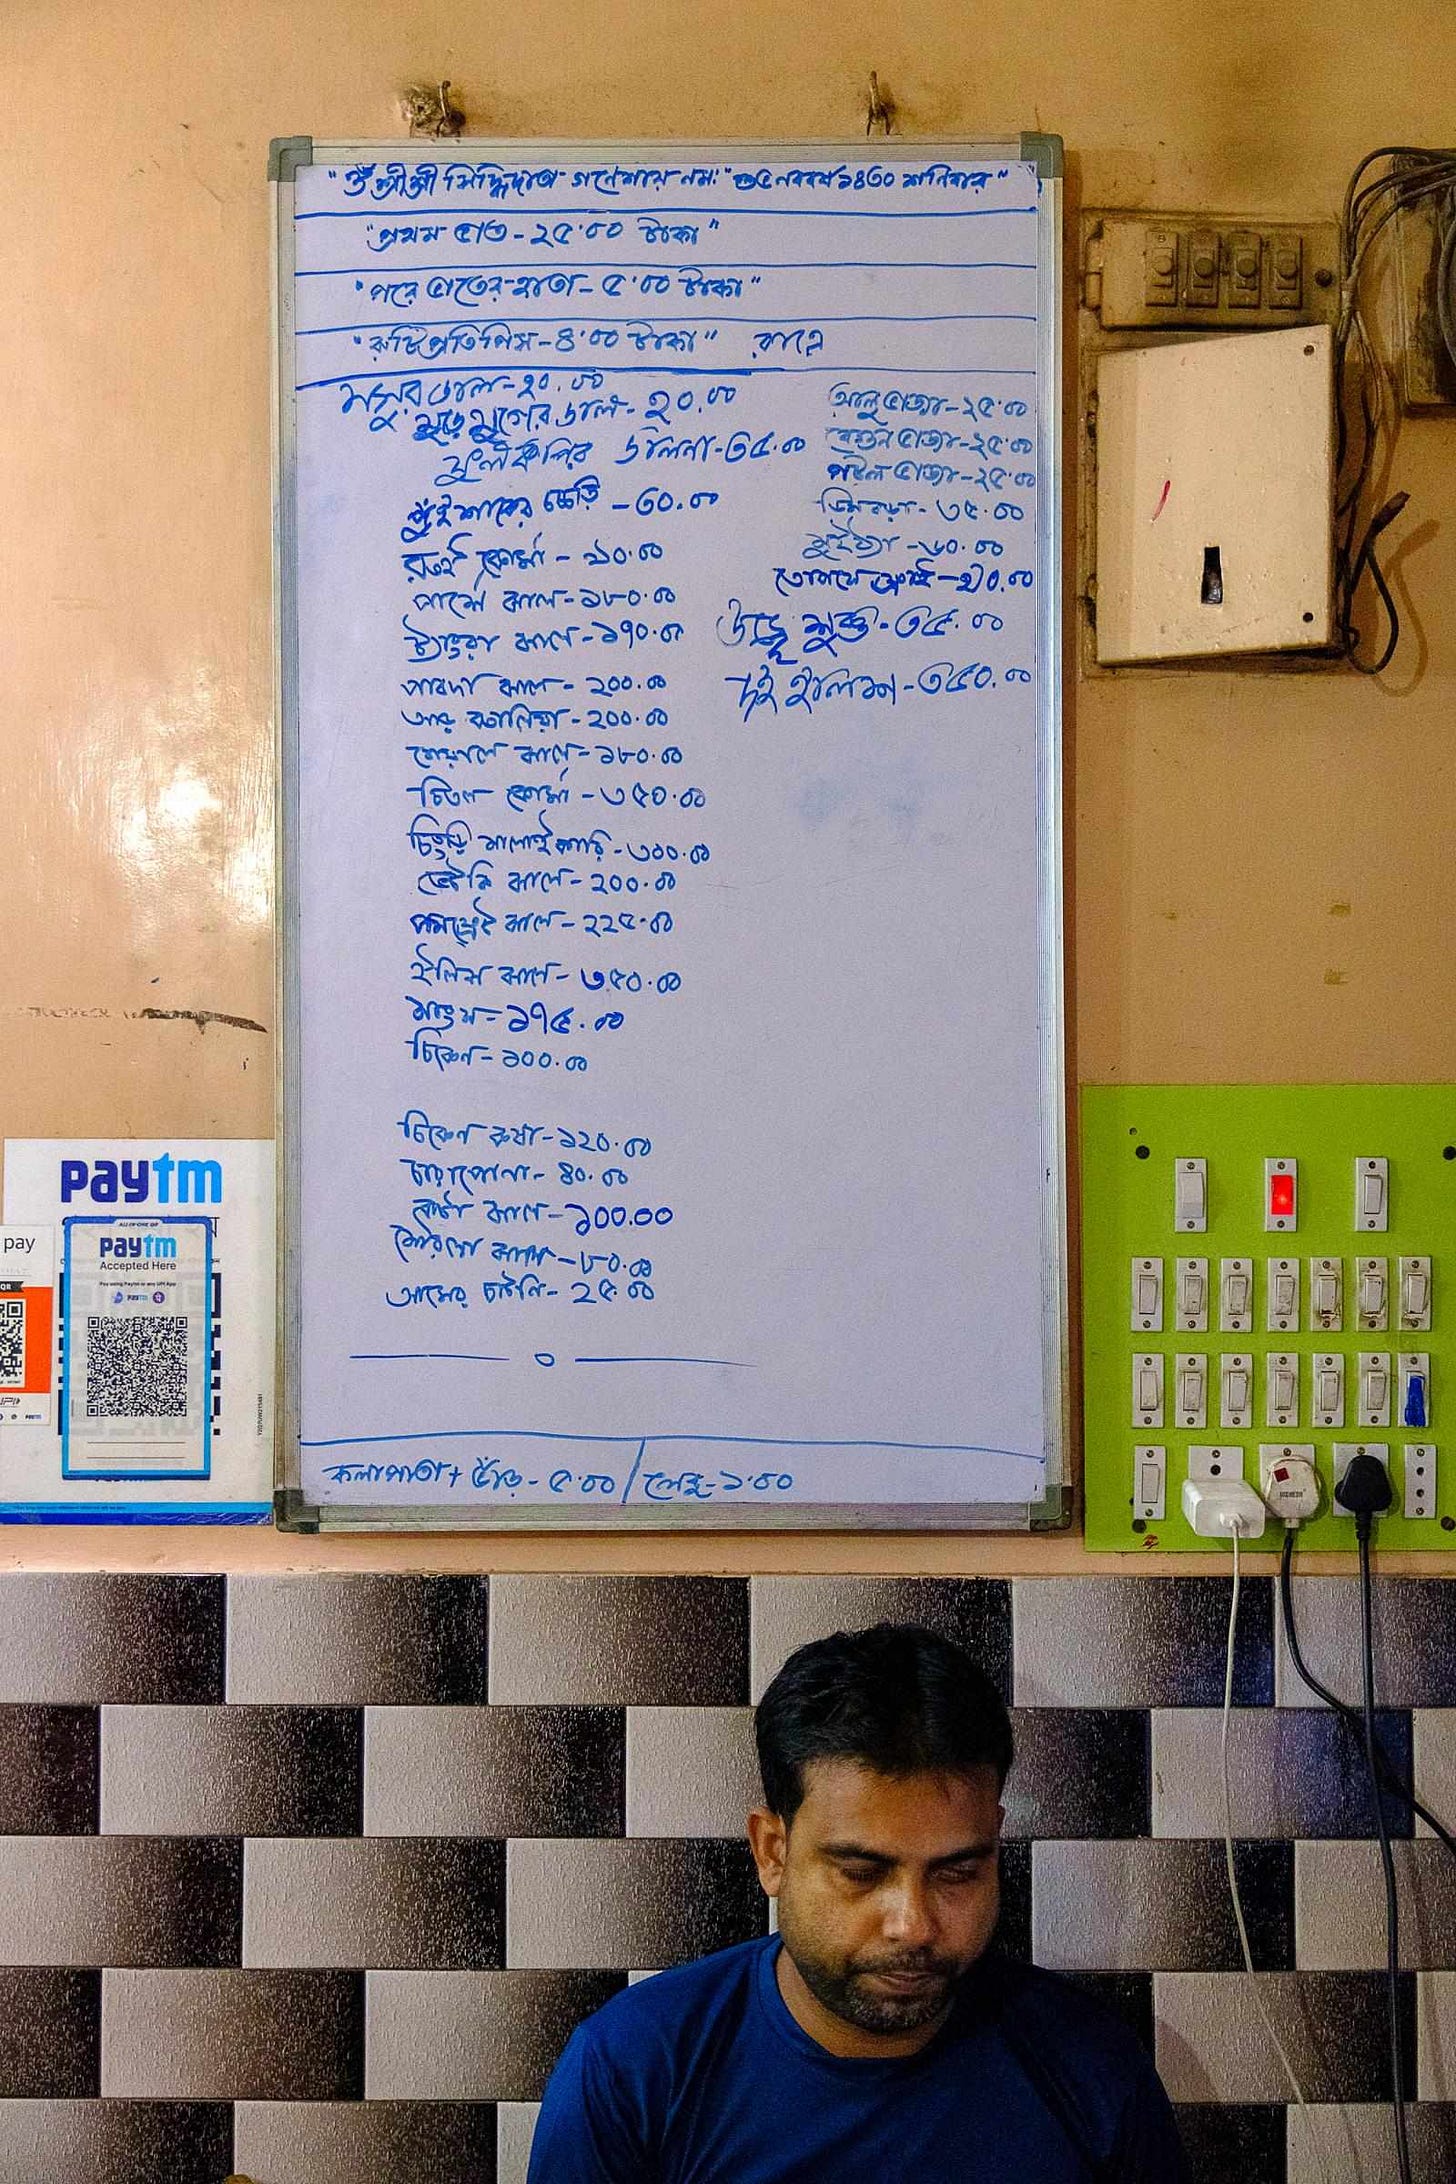 "ওঁ শ্রী শ্রী সিদ্ধিদাতা গণেশায় নমঃ" শুভ নববর্ষ ১৪৩০ শনিবার"
"প্রথম ভাত - ২৫.০০ টাকা"
"পরে ভাতের হাতা - ৫.০০ টাকা"
"রুটি প্রতি পিস - ৪.০০ টাকা" রাত্রে
মসুর ডাল - ২০.০০
মুড়ো মুগের ডাল - ২০.০০
ফুলকপির ডালনা - ৩৫.০০
পুঁই শাকের চচ্চড়ি - ৩০.০০
রুই কোর্মা - ৯০.০০
পার্সে ঝাল - ১৮০.০০
ট্যাংরা ঝাল - ১৭০.০০
পাবদা ঝাল - ২০০.০০
আড় - ২০০.০০
বোয়াল ঝাল - ১৮০.০০
চিতল কোর্মা - ৩৫০.০০
চিংড়ি মালাইকারি - ৩০০.০০
ভেটকি ঝাল - ২০০.০০
পমফ্রেট ঝাল - ২২৫.০০
ইলিশ ঝাল - ৩৫০.০০
মাংস - ১৭৫.০০
চিকেন - ১০০.০০
চিকেন কষা - ১২০.০০
চারাপোনা - ৪০.০০
ঝাল - ১০০.০০
মৌরলা ঝাল - ৮০.০০
আমের চাটনি - ২৫.০০
আলু ভাজা - ২৫.০০
বেগুন ভাজা - ২৫.০০
পটল ভাজা - ২৫.০০
- ৩৫.০০
- ৬০.০০
উচ্ছে শুক্ত - ৩৫.০০
দই ইলিশ - ৩৫০.০০
কলাপাতা + ভাঁড় - ৫.০০ / লেবু - ১.০০
paytm
pay
ALL-IN-ONE QR
paytm
Accepted Here
Pay using Paytm or any UPI App